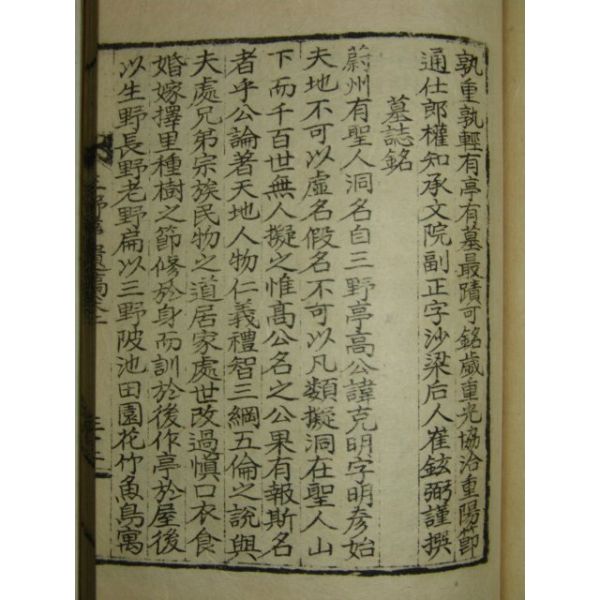 孰重孰輕有亭有墓最蹟可銘歲重光協洽重陽節
通仕郎權知承文院副正字沙梁后人崔鉉弼謹撰
墓誌銘
蔚州有聖人洞名自三野亭高公諱克明字明彦始
夫地不可以虛名假名不可以凡類擬洞在聖人山
下而千百世無人擬之惟高公名之公果有報斯名
者乎公論著天地人物仁義禮智三綱五倫之說與
夫處兄弟宗族民物之道居家處世改過愼口衣食
婚嫁擇里種樹之節修於身而訓於後作亭於屋後
以生野長野老野扁以三野陂池田園花竹魚鳥寓
三野亭遺稿卷二